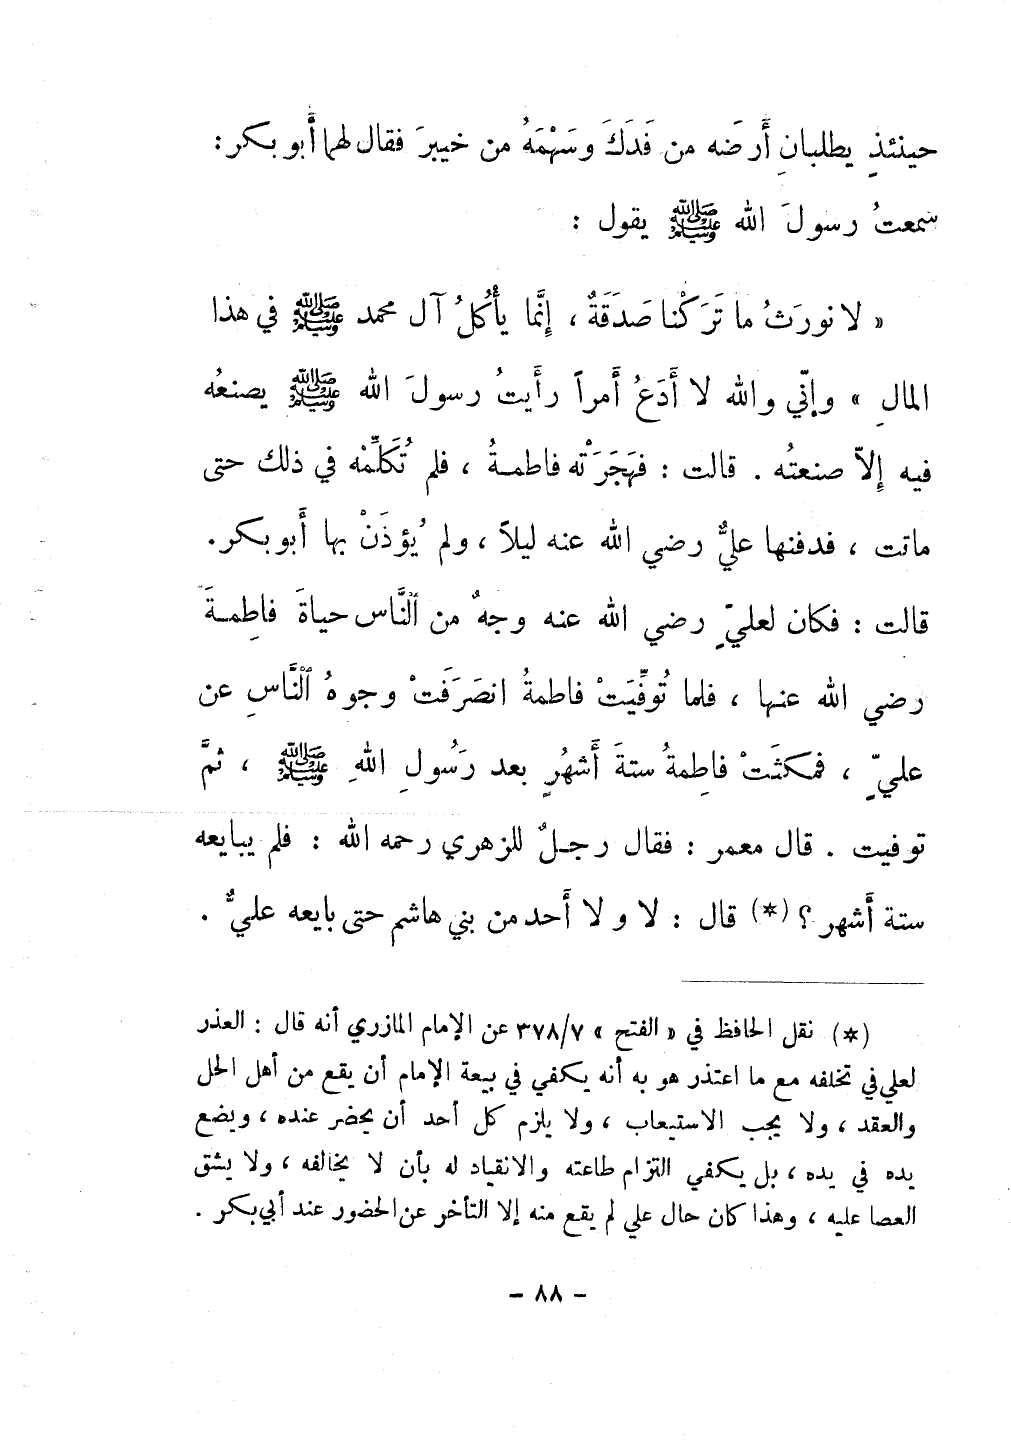 حينئذٍ يطلبانِ أَرضَه من فَدَكَ وسَهْمَهُ من خيبرَ فقال لهما أَبو بكر :
سمعتُ رسولَ الله ﷺ يقول :
« لا نورَثُ ما تَرَكْنا صَدَقَةٌ ، إِنَّما يأْكُلُ آل محمد ﷺ في هذا
المالِ » وإنّي والله لا أَدَعُ أَمراً رأَيتُ رسولَ الله ﷺ يصنعُه
فيه إِلاّ صنعتُه . قالت : فهَجَرَتْه فاطمـةُ ، فلم تُكَلِّمْه في ذلك حتى
ماتت ، فدفنها عليٌّ رضي الله عنه ليلاً ، ولم يُؤذَنْ بها أَبو بكر .
قالت : فكان لعليٍّ رضي الله عنه وجهٌ من ٱلنَّاس حياةَ فاطِمـةَ
رضي الله عنها ، فلما تُوفِّيَتْ فاطمةُ انصَرَفَتْ وجوهُ ٱلنَّاسِ عن
عليٍّ ، فمكثَتْ فاطِمةُ ستةَ أَشهُرٍ بعد رَسُولِ اللهِ ﷺ ، ثمَّ
توفيت . قال معمر : فقال رجـلٌ للزهري رحمه الله : فلم يبايعه
ستة أَشهر ؟ (*) قال : لا و لا أَحد من بني هاشم حتى بايعه عليٌّ .
(*) نقل الحافظ في « الفتح » ٣٧٨/٧ عن الإمام المازري أنه قال : العذر
لعلي في تخلفه مع ما اعتذر هو به أنه يكفي في بيعة الإمام أن يقع من أهل الحل
والعقد ، ولا يجب الاستيعاب ، ولا يلزم كل أحد أن يحضر عنده ، ويضع
يده في يده ، بل يكفي التزام طاعته والانقياد له بأن لا يخالفه ، ولا يشق
العصا عليه ، وهذا كان حال علي لم يقع منه إلا التأخر عن الحضور عند أبي بكر .
- ٨٨ -